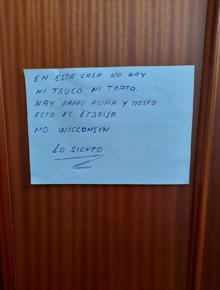 EN ESTA CASA NO HAY
NI TRUCO NI TRATO.
HAY PAPAS ALIÑÁ Y MOSTO
ESTO ES LEBRIJA.
NO WISCONSIN.
LO SIENTO